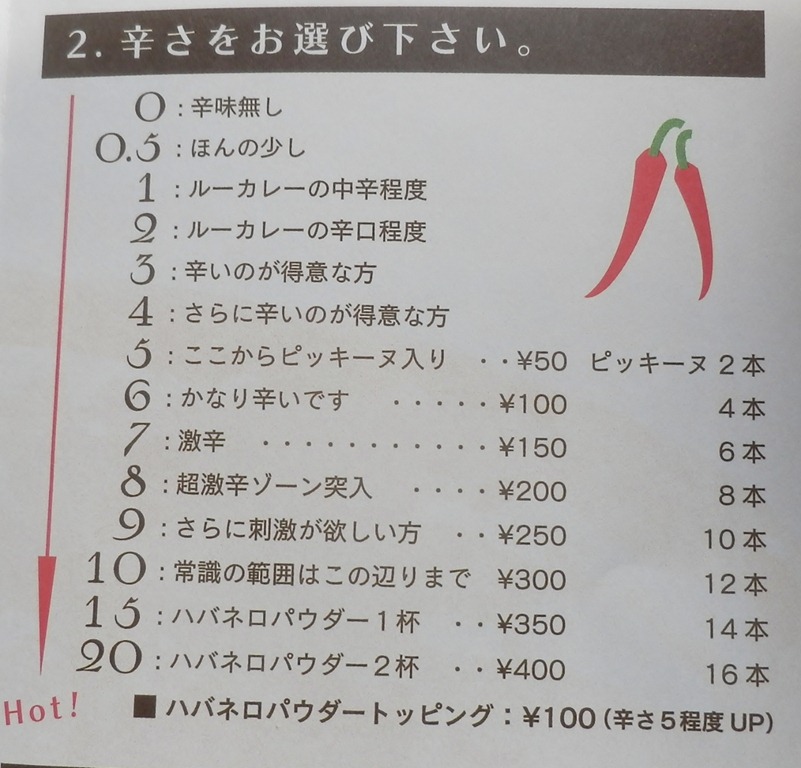 2. 辛さをお選び下さい。
0：辛味無し
0.5：ほんの少し
1：ルーカレーの中辛程度
2：ルーカレーの辛口程度
3：辛いのが得意な方
4：さらに辛いのが得意な方
5：ここからピッキーヌ入り ・・¥50 ピッキーヌ 2本
6：かなり辛いです ・・・・・¥100 4本
7：激辛 ・・・・・・・・・・・¥150 6本
8：超激辛ゾーン突入 ・・・・¥200 8本
9：さらに刺激が欲しい方 ・・¥250 10本
10：常識の範囲はこの辺りまで ¥300 12本
15：ハバネロパウダー1杯 ・・¥350 14本
20：ハバネロパウダー2杯 ・・¥400 16本
Hot!
■ ハバネロパウダートッピング：¥100（辛さ5程度UP）